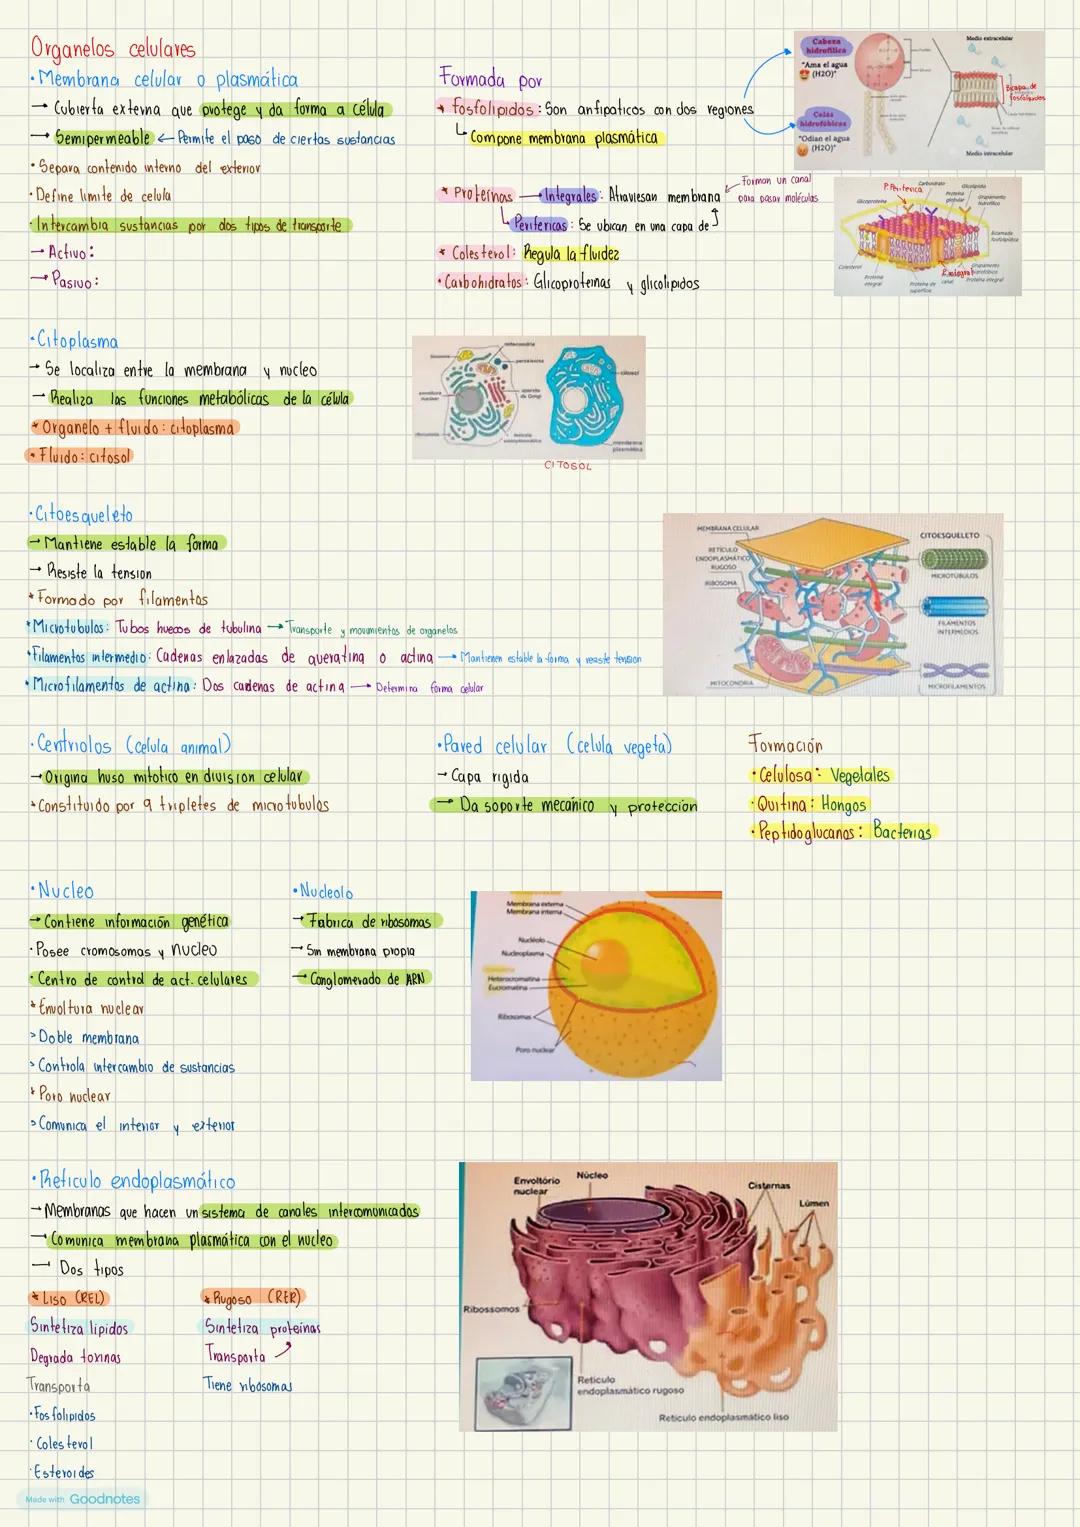 Organelos celulares
• Membrana celular o plasmática
→ Cubierta externa que protege y da forma a célula
→ Semipermeable ← Permite el paso de ciertas sustancias
• Separa contenido interno del exterior
• Define limite de celula
• Intercambia sustancias por dos tipos de transporte
→ Activo:
→ Pasivo:
Formada por
* Fosfolípidos: Son anfipaticos con dos regiones
Compone membrana plasmática
* Proteínas → Integrales: Atraviesan membrana
Forman un canal
para pasar moléculas
Perifericas: Se ubican en una capa de
* Colesterol: Regula la fluidez
• Carbohidratos: Glicoproteinas y glicolipidos
Cabeza
hidrofílica
"Ama el agua
(H2O)"
Colas
hidrofóbicas
"Odian el agua
(H2O)"
Medio extracelular
Bicapa de
fosfolípidos
Medio intracelular
P. Periferica
Carbohidrato
Glicolípido
Glicoproteína
Proteína
globular
Grupamento
hidrofílico
Bicamada
fosfolipídica
Colesterol
Proteína
integral
Proteína de
superfície
canal
P. integral
Grupamento
hidrofóbico
Proteína integral
• Citoplasma
→ Se localiza entre la membrana y nucleo
→ Realiza las funciones metabólicas de la célula
* Organelo + fluido: citoplasma
* Fluido: citosol
mitocondria
peroxisoma
aparato
de Golgi
citosol
membrana
plasmática
CITOSOL
• Citoesqueleto
→ Mantiene estable la forma
→ Resiste la tension
* Formado por filamentos
* Microtubulos: Tubos huecos de tubulina → Transporte y movimientos de organelos
* Filamentos intermedio: Cadenas enlazadas de queratina o actina → Mantienen estable la forma y resiste tension
* Microfilamentos de actina: Dos cadenas de actina → Determina forma celular
MEMBRANA CELULAR
RETÍCULO
ENDOPLASMÁTICO
RUGOSO
RIBOSOMA
MITOCONDRIA
CITOESQUELETO
MICROTÚBULOS
FILAMENTOS
INTERMEDIOS
MICROFILAMENTOS
• Centriolos (celula animal)
→ Origina huso mitotico en division celular
* Constituido por 9 tripletes de microtubulos
• Pared celular (celula vegetal)
→ Capa rigida
→ Da soporte mecánico y proteccion
Formación
• Celulosa: Vegetales
• Quitina: Hongos
• Peptidoglucanos: Bacterias
• Nucleo
→ Contiene información genética
• Posee cromosomas y nucleo
• Centro de control de act. celulares
* Envoltura nuclear
> Doble membrana
> Controla intercambio de sustancias
* Poro nuclear
> Comunica el interior y exterior
• Nucleolo
→ Fabrica de ribosomas
→ Sin membrana propia
→ Conglomerado de ARN
Membrana externa
Membrana interna
Nucléolo
Nucleoplasma
Heterocromatina
Eucromatina
Ribosomas
Poro nuclear
• Reticulo endoplasmático
→ Membranas que hacen un sistema de canales intercomunicados
→ Comunica membrana plasmática con el nucleo
→ Dos tipos
* Liso (REL)
Sintetiza lipidos
Degrada toxinas
Transporta
• Fosfolipidos
• Colesterol
• Esteroides
* Rugoso (RER)
Sintetiza proteinas
Transporta
Tiene ribosomas
Envoltório
nuclear
Núcleo
Cisternas
Lúmen
Ribossomos
Retículo
endoplasmático rugoso
Retículo endoplasmático liso
Made with Goodnotes